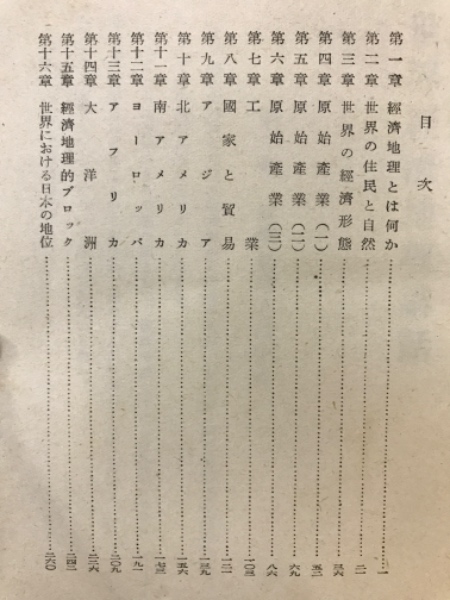 目次
第一章 經濟地理とは何か……一
第二章 世界の住民と自然……二一
第三章 世界の經濟形態……三六
第四章 原始產業(一)……五二
第五章 原始產業(二)……六九
第六章 原始產業(三)……八六
第七章 工業……一〇三
第八章 國家と貿易……一二一
第九章 アジア……一三九
第十章 北アメリカ……一五六
第十一章 南アメリカ……一七三
第十二章 ヨーロッパ……一九一
第十三章 アフリカ……二〇九
第十四章 大洋洲……二二六
第十五章 經濟地理的ブロック……二四二
第十六章 世界における日本の地位……二六〇